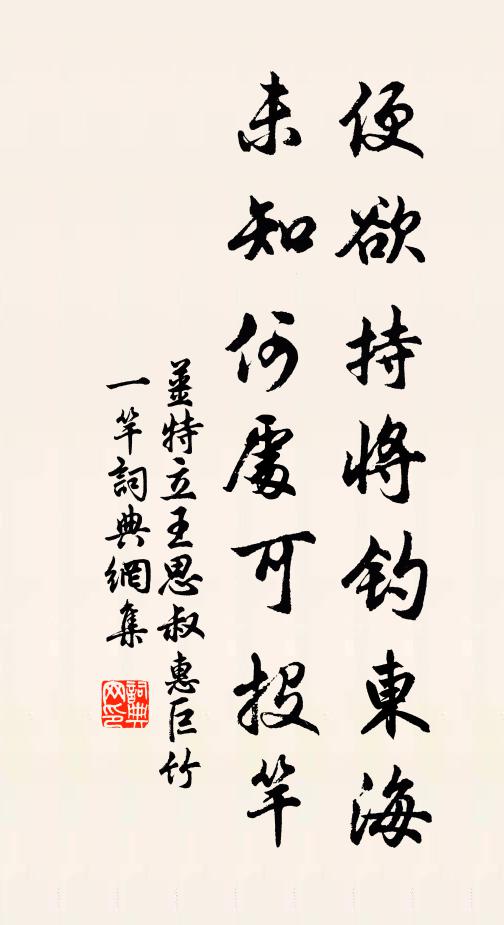 便欲持將釣東海
未知何處可投竿
姜特立王思叔惠巨竹
一竿詞典網集
詞典網印